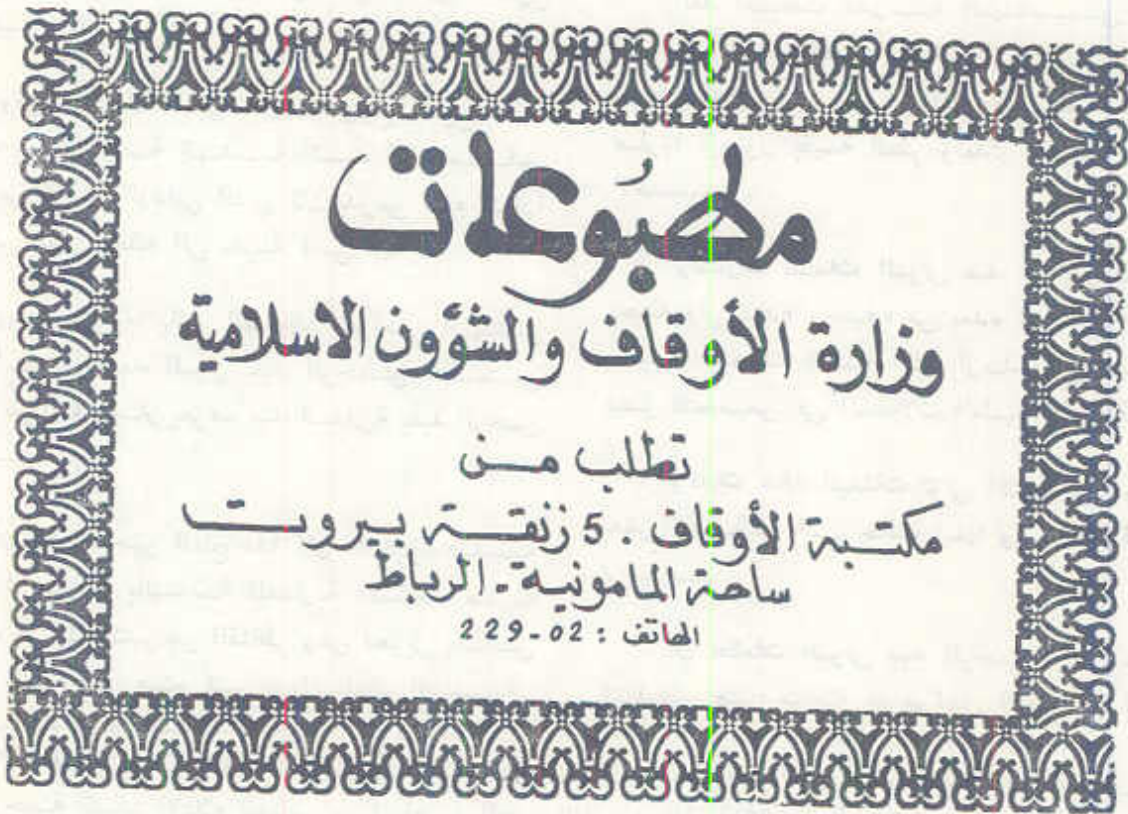 مطبوعات
وزارة الأوقاف والشؤون الاسلامية
تطلب من
مكتبة الأوقاف . 5 زنقة بيروت
ساحة المامونية - الرباط
الهاتف : 02-229